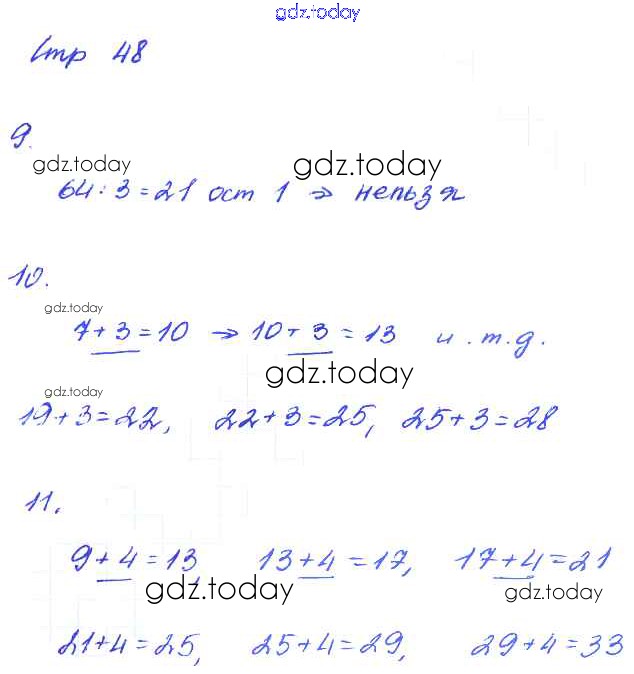 gdz.today
Стр 48
9.
gdz.today gdz.today
64 : 3 = 21 ост 1 → нельзя
10.
gdz.today
7 + 3 = 10 → 10 + 3 = 13 и.т.д.
gdz.today
gdz.today
19 + 3 = 22, 22 + 3 = 25, 25 + 3 = 28
11.
9 + 4 = 13, 13 + 4 = 17, 17 + 4 = 21
gdz.today gdz.today
21 + 4 = 25, 25 + 4 = 29, 29 + 4 = 33